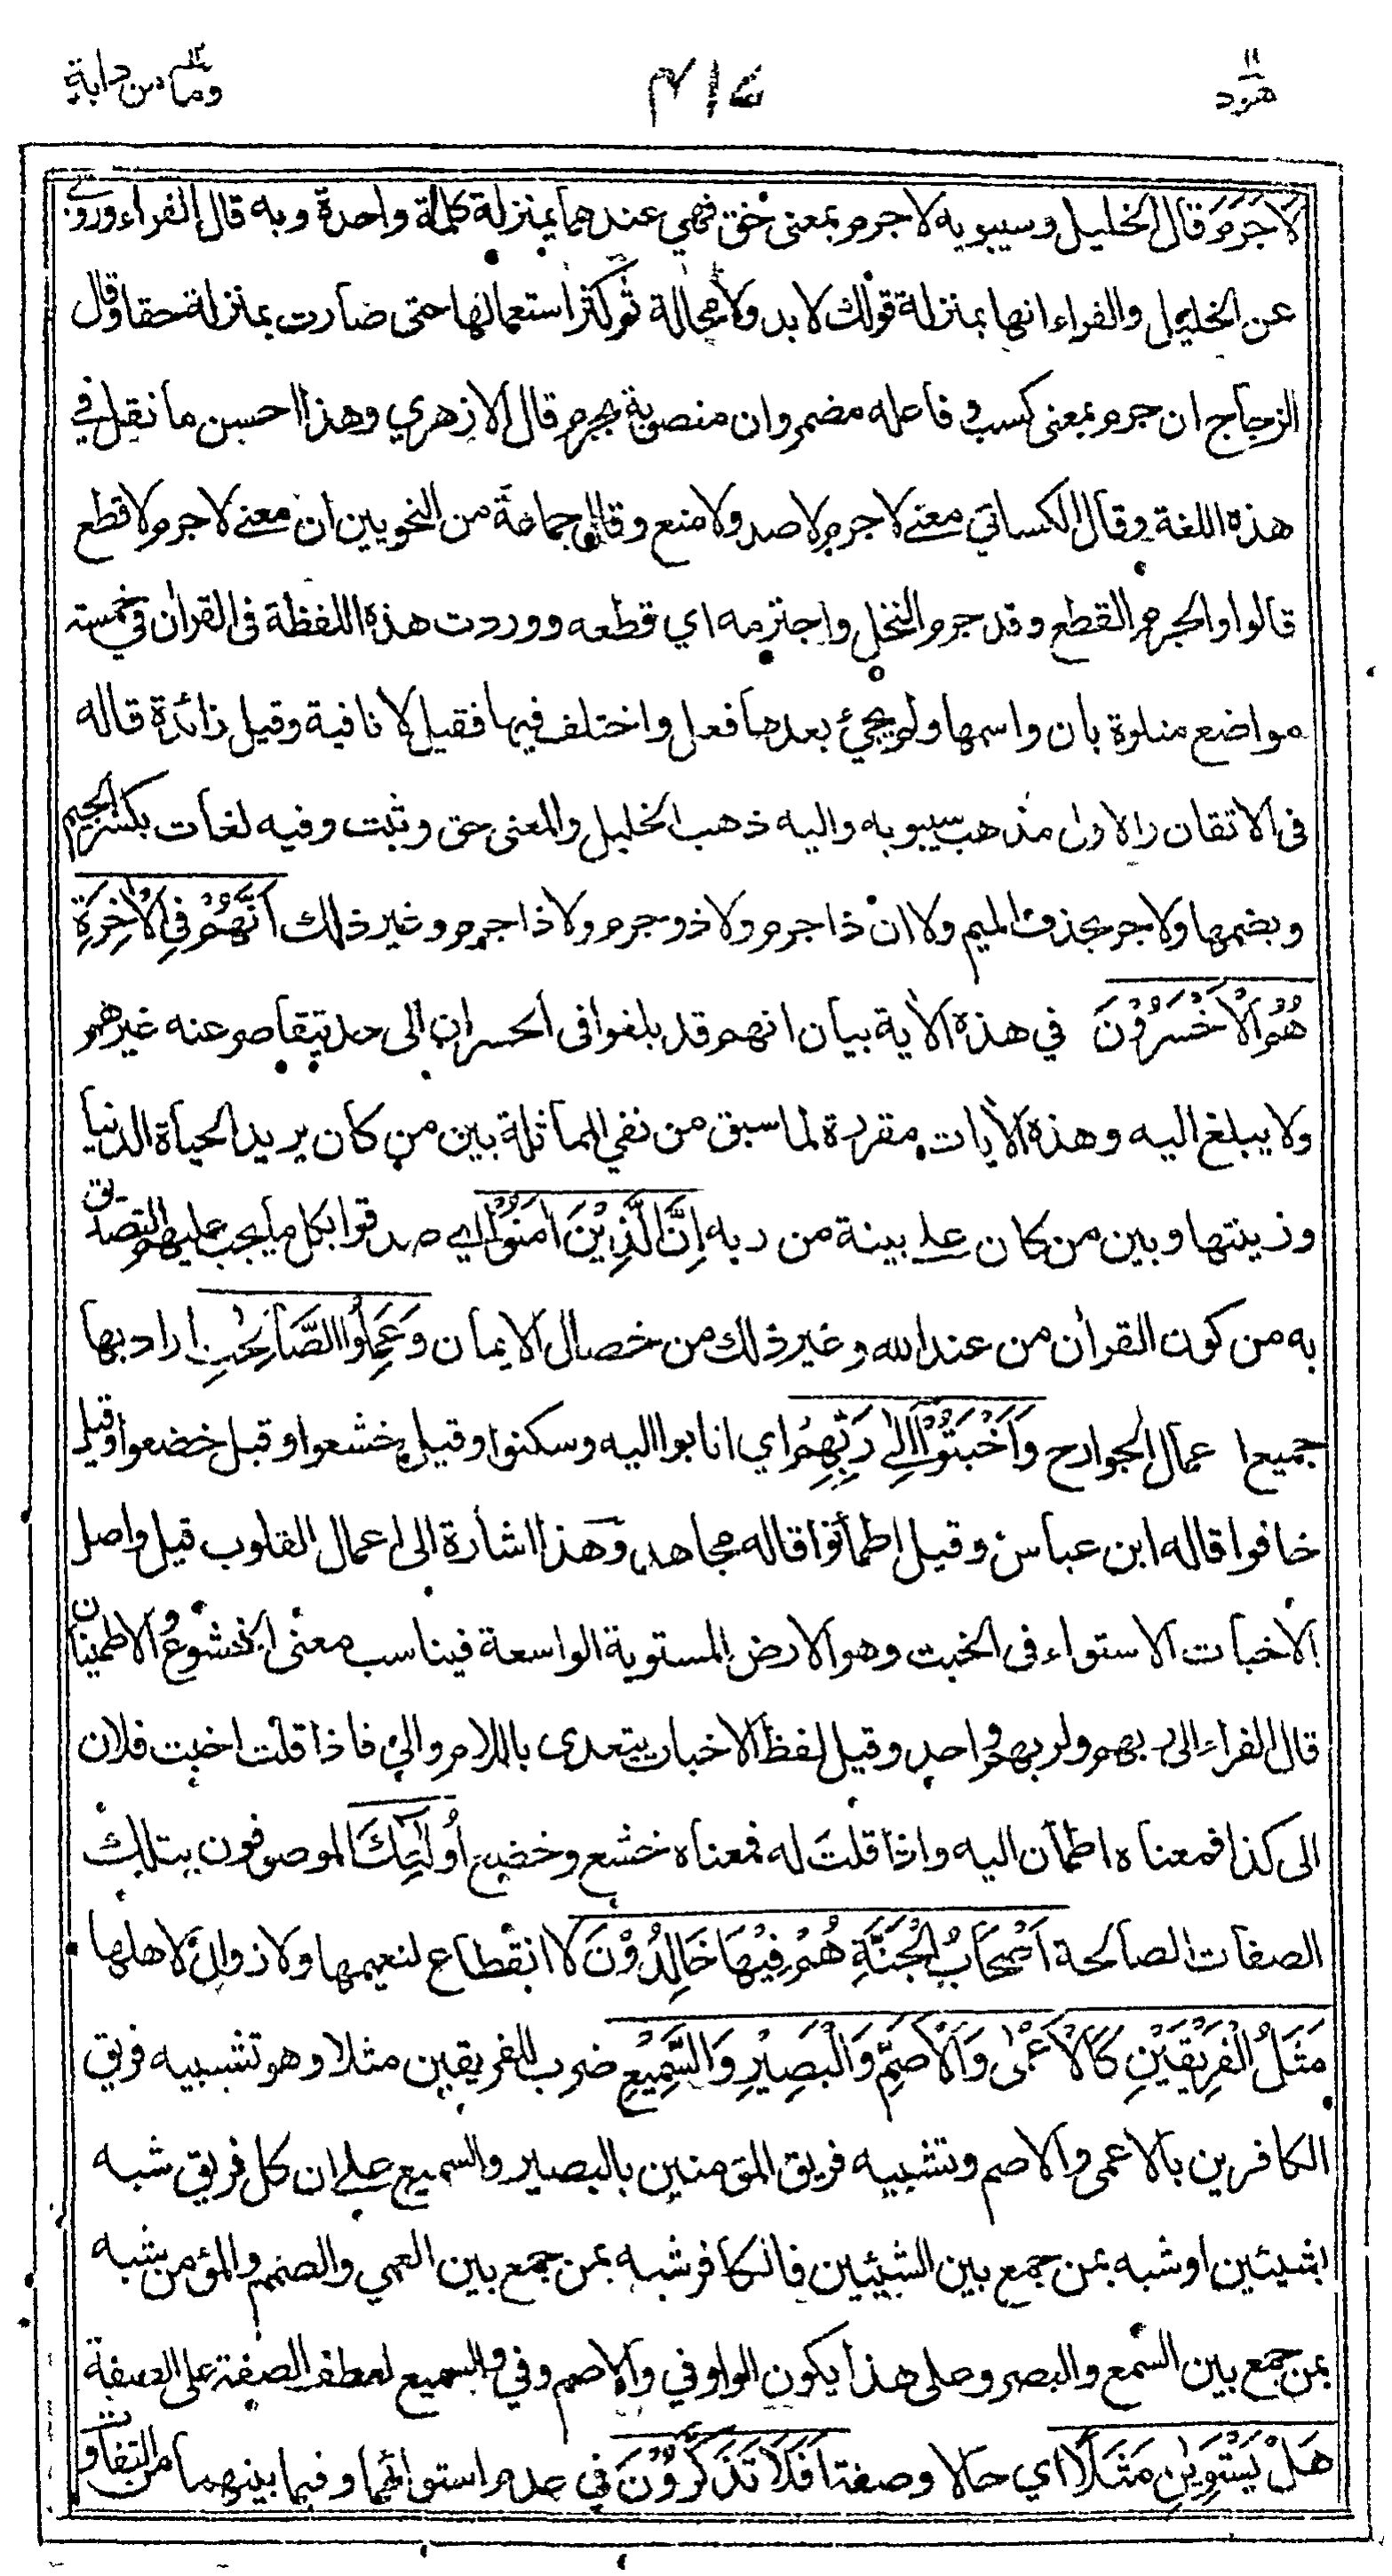 هود ١١
وما من دابة ١٢
لَاجَرَمَ قال الخليل وسيبويه لاجرم بمعنى حق فهي عندهما بمنزلة كلمة واحدة وبه قال الفراء وروى
عن الخليل والفراء انها بمنزلة قولك لا بد ولا محالة ثم كثر استعمالها حتى صارت بمنزلة حقا وقال
الزجاج ان جرم بمعنى كسب و فاعله مضمر وان منصوبة بجرم قال الازهري وهذا احسن ما نقل في
هذه اللغة وقال الكسائي معنے لاجرم لاصد ولا منع وقال جماعة من النحويين ان معنے لاجرم لا قطع
قالوا والجرم القطع وقد جرم النخل واجترمه اي قطعه ووردت هذه اللفظة فى القرآن في خمسة
مواضع متلوة بان واسمها ولم يجئ بعدها فعل واختلف فيها فقيل لا نافية وقيل زائدة قاله
فى الاتقان والاول مذهب سيبويه واليه ذهب الخليل والمعنى حق وثبت وفيه لغات بكسر الجيم
وبضمها ولاجر بحذف الميم ولا ان ذا جرم ولا ذو جرم ولا ذا جرم وغير ذلك اَنَّهُمْ فِي الْاٰخِرَةِ
هُمُ الْاَخْسَرُوْنَ في هذه الاية بيان انهم قد بلغوا فى الخسران الى حد يتقاصر عنه غيرهم
ولا يبلغ اليه وهذه الاٰيات مقررة لما سبق من نفي المماثلة بين من كان يريد الحياة الدنيا
وزينتها وبين من كان علے بينة من ربه اِنَّ الَّذِيْنَ اٰمَنُوْا اي صدقوا بكل ما يجب عليهم التصديق
به من كون القراٰن من عند الله وغير ذلك من خصال الايمان وَعَمِلُوا الصَّالِحٰتِ اراد بها
جميع اعمال الجوارح وَاَخْبَتُوْا اِلٰى رَبِّهِمْ اي انابوا اليه وسكنوا وقيل خشعوا وقيل خضعوا وقيل
خافوا قاله ابن عباس وقيل اطمأنوا قاله مجاهد وهذا اشارة الى اعمال القلوب قيل واصل
الاخبات الاستواء فى الخبت وهو الارض المستوية الواسعة فيناسب معنى الخشوع و الاطمينان
قال الفراء الى ربهم ولربهم واحد وقيل لفظ الاخبات يتعدى باللام والى فاذا قلت اخبت فلان
الى كذا فمعناه اطمأن اليه واذا قلت له فمعناه خشع وخضع اُولٰٓئِكَ الموصوفون بتلك
الصفات الصالحة اَصْحَابُ الْجَنَّةِ هُمْ فِيْهَا خَالِدُوْنَ لا انقطاع لنعيمها ولا زوال لاهلها
مَثَلُ الْفَرِيْقَيْنِ كَالْاَعْمٰى وَالْاَصَمِّ وَالْبَصِيْرِ وَالسَّمِيْعِ ضرب للفريقين مثلا وهو تشبيه فريق
الكافرين بالاعمى والاصم وتشبيه فريق المؤمنين بالبصير والسميع علے ان كل فريق شبه
بشيئين او شبه بمن جمع بين الشيئين فالكافر شبه بمن جمع بين العمي والصمم والمؤمن شبه
بمن جمع بين السمع والبصر وعلى هذا يكون الواو في والاصم وفي والسميع لعطف الصفة على الصفة
هَلْ يَسْتَوِيٰنِ مَثَلًا اي حالا وصفة اَفَلَا تَذَكَّرُوْنَ في عدم استوائهما وفيما بينهما من التفاوت